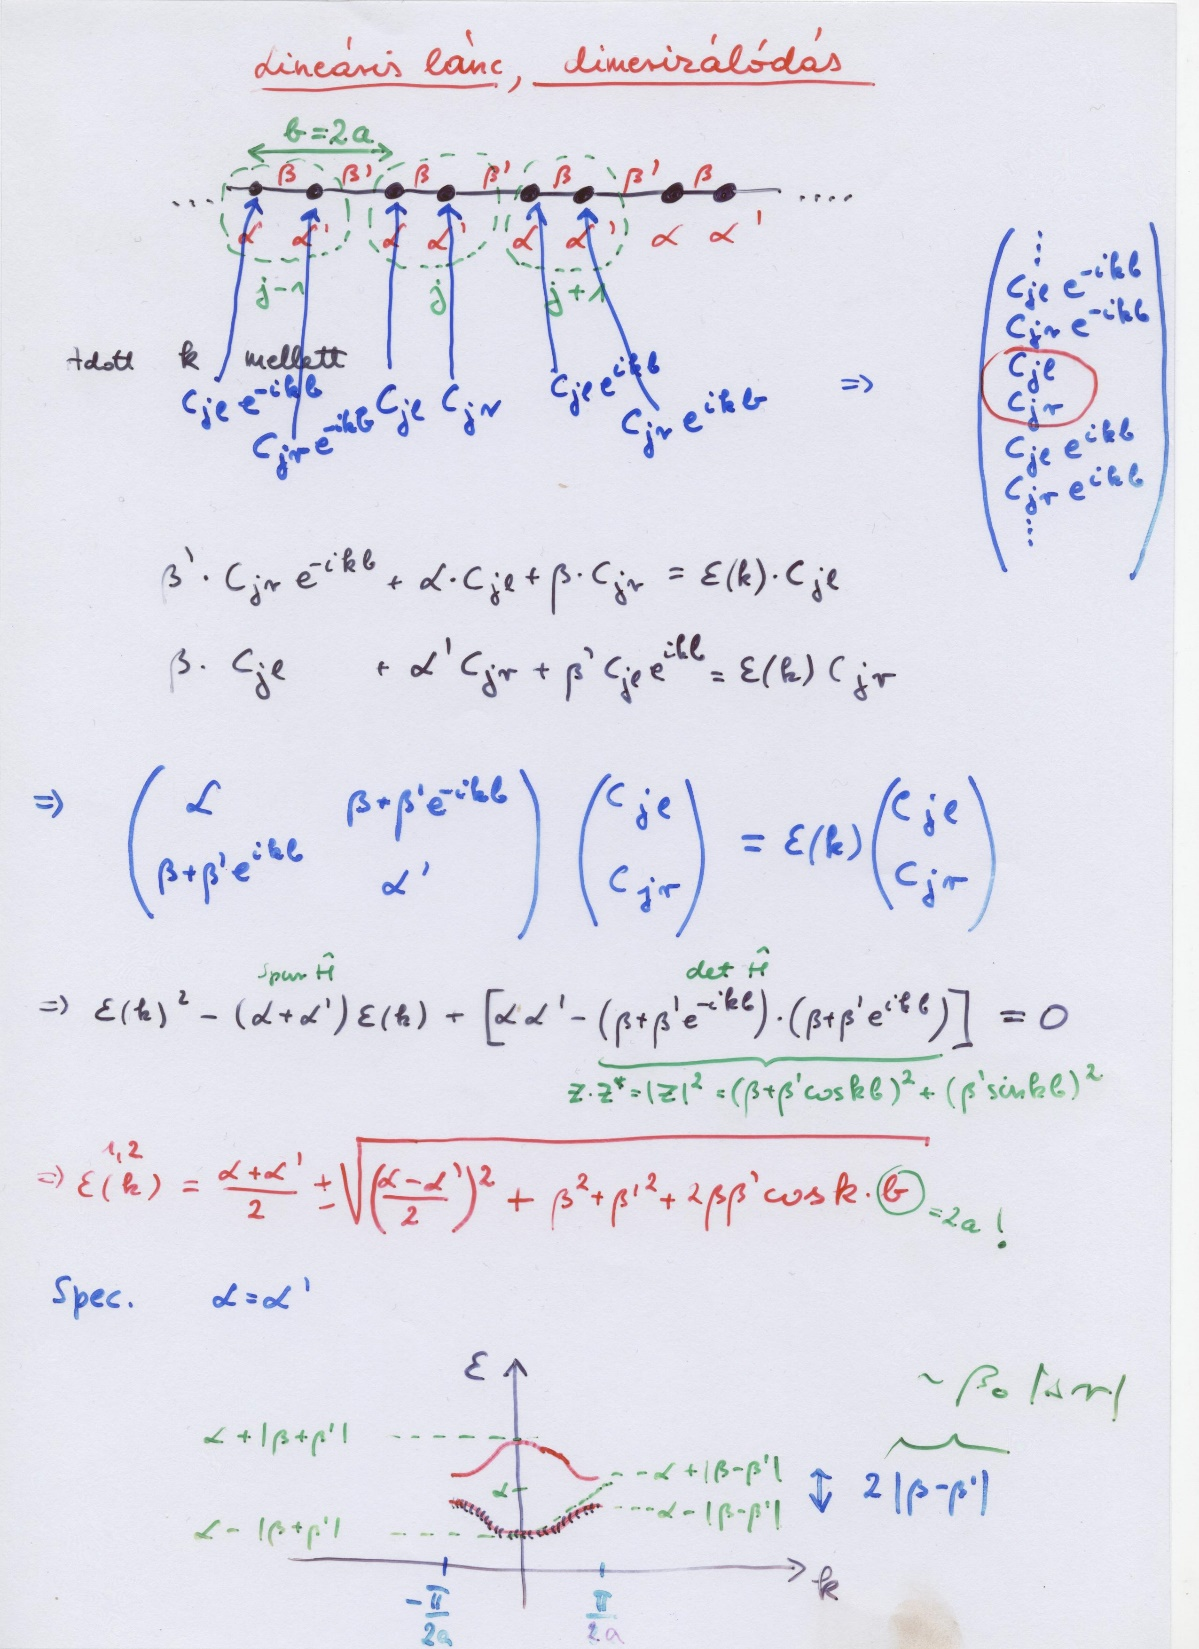 Lineáris lánc, dimerizálódás
b=2a
β β' β β' β β' β
... ....
α α' α α' α α' α α'
j-1 j j+1
adott k mellett
C_jl e^{-ikb} C_jr e^{-ikb} C_jl C_jr C_jl e^{ikb} C_jr e^{ikb} ⇒
⋮
C_jl e^{-ikb}
C_jr e^{-ikb}
C_jl
C_jr
C_jl e^{ikb}
C_jr e^{ikb}
⋮
β'· C_jr e^{-ikb} + α·C_jl + β·C_jr = ε(k)·C_jl
β· C_jl + α' C_jr + β' C_jl e^{ikb} = ε(k) C_jr
⇒ ( α β+β'e^{-ikb} ) ( C_jl ) = ε(k) ( C_jl )
( β+β'e^{ikb} α' ) ( C_jr ) ( C_jr )
Spur Ĥ det Ĥ
⇒ ε(k)² - (α+α')ε(k) + [αα' - (β+β'e^{-ikb})·(β+β'e^{ikb})] = 0
z·z* = |z|² = (β+β'cos kb)² + (β'sin kb)²
⇒ ε^{1,2}(k) = (α+α')/2 ± √(((α-α')/2)² + β²+β'²+2ββ'cos k·b) =2a!
Spec. α=α'
ε
~ β₀
α+|β+β'|
α+|β-β'|
2|β-β'|
α
α-|β-β'|
α-|β+β'|
k
-π/2a π/2a